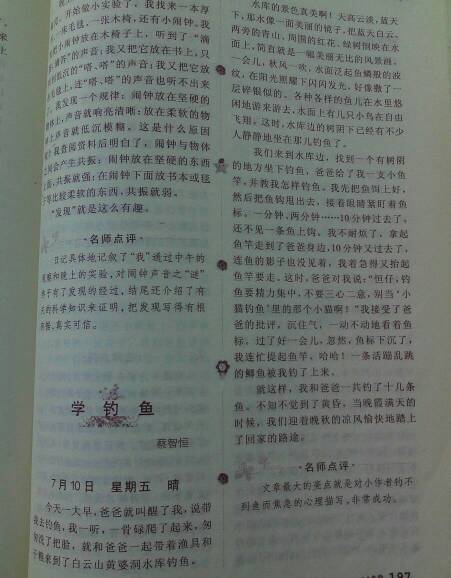 书、一床毛毯、一张木椅，还有小闹钟。我
开始做小实验了，我找来一本厚
小闹钟放在木椅子上，听到了“滴
滴答”的声音；我又把它放在书上，只
低沉的“嗒、嗒”的声音；我又把它放
毯上，连“嗒、嗒”的声音也听不出来
我发现一个规律：闹钟放在坚硬的
物体上，声音就响亮清晰；放在柔软的物
上声音就低沉模糊。这是什么原因
我查阅资料后明白了，闹钟与物体
之间会产生共振：闹钟放在坚硬的东西
共振就强；在闹钟下面放书本或毯
子等比较柔软的东西，共振就弱。
“发现”就是这么有趣。
·名师点评·
日记具体地记叙了“我”透过中午的
观察和晚上的实验，对闹钟声音之“谜”
终于有了发现的经过，结尾还介绍了有
关的科学知识来证明，把发现写得有根
有据，真实可信。
学钓鱼
蔡智恒
7月10日 星期五 晴
今天一大早，爸爸就叫醒了我，说带
我去钓鱼，我一听，一骨碌爬了起来，匆
匆洗了把脸，就和爸爸一起带着渔具和
干粮来到了白云山黄婆洞水库钓鱼。
水库的景色真美啊！天高云淡，蓝天
下，那水像一面美丽的镜子，把蓝天白云、
两旁的青山、周围的红花、绿树倒映在水
面上，简直就是一幅美丽无比的风景画。
一会儿，秋风一吹，水面泛起鱼鳞般的波
纹，在阳光照耀下闪闪发光，好像撒了一
层碎银似的。各种各样的鱼儿在水里悠
闲地游来游去，水面上有几只小鸟在自由
飞翔。这时，水库边的树阴下已经有不少
人静静地坐在那儿钓鱼了。
我们来到水库边，找到一个有树阴
的地方坐下钓鱼，爸爸给了我一支小鱼
竿，并教我怎样钓鱼。我先把鱼饵上好，
然后把鱼钩甩出去，接着眼睛紧盯着鱼
标，一分钟、两分钟……10分钟过去了，
还不见一条鱼上钩。我不耐烦了，拿起
鱼竿走到了爸爸身边。10分钟又过去了，
连鱼的影子也没见着，我着急得又抬起
鱼竿要走。这时，爸爸对我说：“恒仔，钓
鱼要精力集中，不要三心二意，别当‘小
猫钓鱼’里的那个小猫啊！”我接受了爸
爸的批评，沉住气，一动不动地看着鱼
标，过了好一会儿，忽然，鱼标下沉了，
我连忙提起鱼竿，哈哈！一条活蹦乱跳
的鲫鱼被我钓了上来。
就这样，我和爸爸一共钓了十几条
鱼。不知不觉到了黄昏，当晚霞满天的
时候，我们迎着晚秋的凉风愉快地踏上
了回家的路途。
·名师点评·
文章最大的亮点就是对小作者钓不
到鱼而焦急的心理描写，非常成功。
197